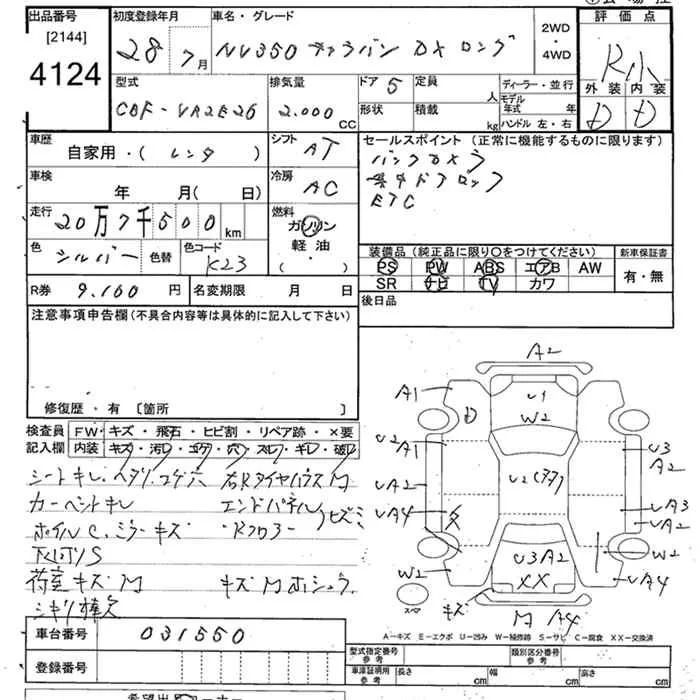 出品番号
[2144]
4124
初度登録年月
28年 7月
車名・グレード
NV350 キャラバン DX ロング
2WD
・
4WD
評価点
R小
外装 内装
D D
型式
CBF-VR2E26
排気量
2.000 CC
ドア 5
形状
定員 人
積載 kg
ディーラー・並行
モデル年式 年
ハンドル 左・右
車歴
自家用・( レンタ )
シフト AT
車検
年 月( 日)
冷房 AC
走行
20万7千500 km
燃料
ガソリン
軽油
( ・ )
色 シルバー 色替
色コード K23
R券 9.160 円
名変期限 月 日
セールスポイント (正常に機能するものに限ります)
バックカメラ
集中ドアロック
ETC
装備品 (純正品に限り○をつけてください)
PS PW ABS エアB AW
SR ナビ TV カワ
新車保証書
有・無
後日品
注意事項申告欄 (不具合内容等は具体的に記入して下さい)
修復歴・有 〔箇所 〕
検査員記入欄
FW・キズ・飛石・ヒビ割・リペア跡・×要
内装・キズ・汚レ・コゲ・穴・スレ・キレ・破レ
シートキレ.ヘタリ.コゲ穴 右RタイヤハウスM
カーペットキレ エンドパネル
ホイルC.ミラーキズ ・Rフロアー ヒズミ
下回リS
荷室キズM キズMホシュウ
シキリ棒欠
A2
A1
D
U1
W2
U2
A1
U3
A2
UA2
U2
UA3
UA2
UA4
W2
U3A2
XX
W2
UA4
スペア
キズ
M A4
A-キズ E-エクボ U-凹み W-補修跡 S-サビ C-腐食 XX-交換済
車台番号 031550
登録番号
型式指定番号 参考
類別区分番号 参考
車庫証明用 参考
長さ cm
幅 cm
高さ cm